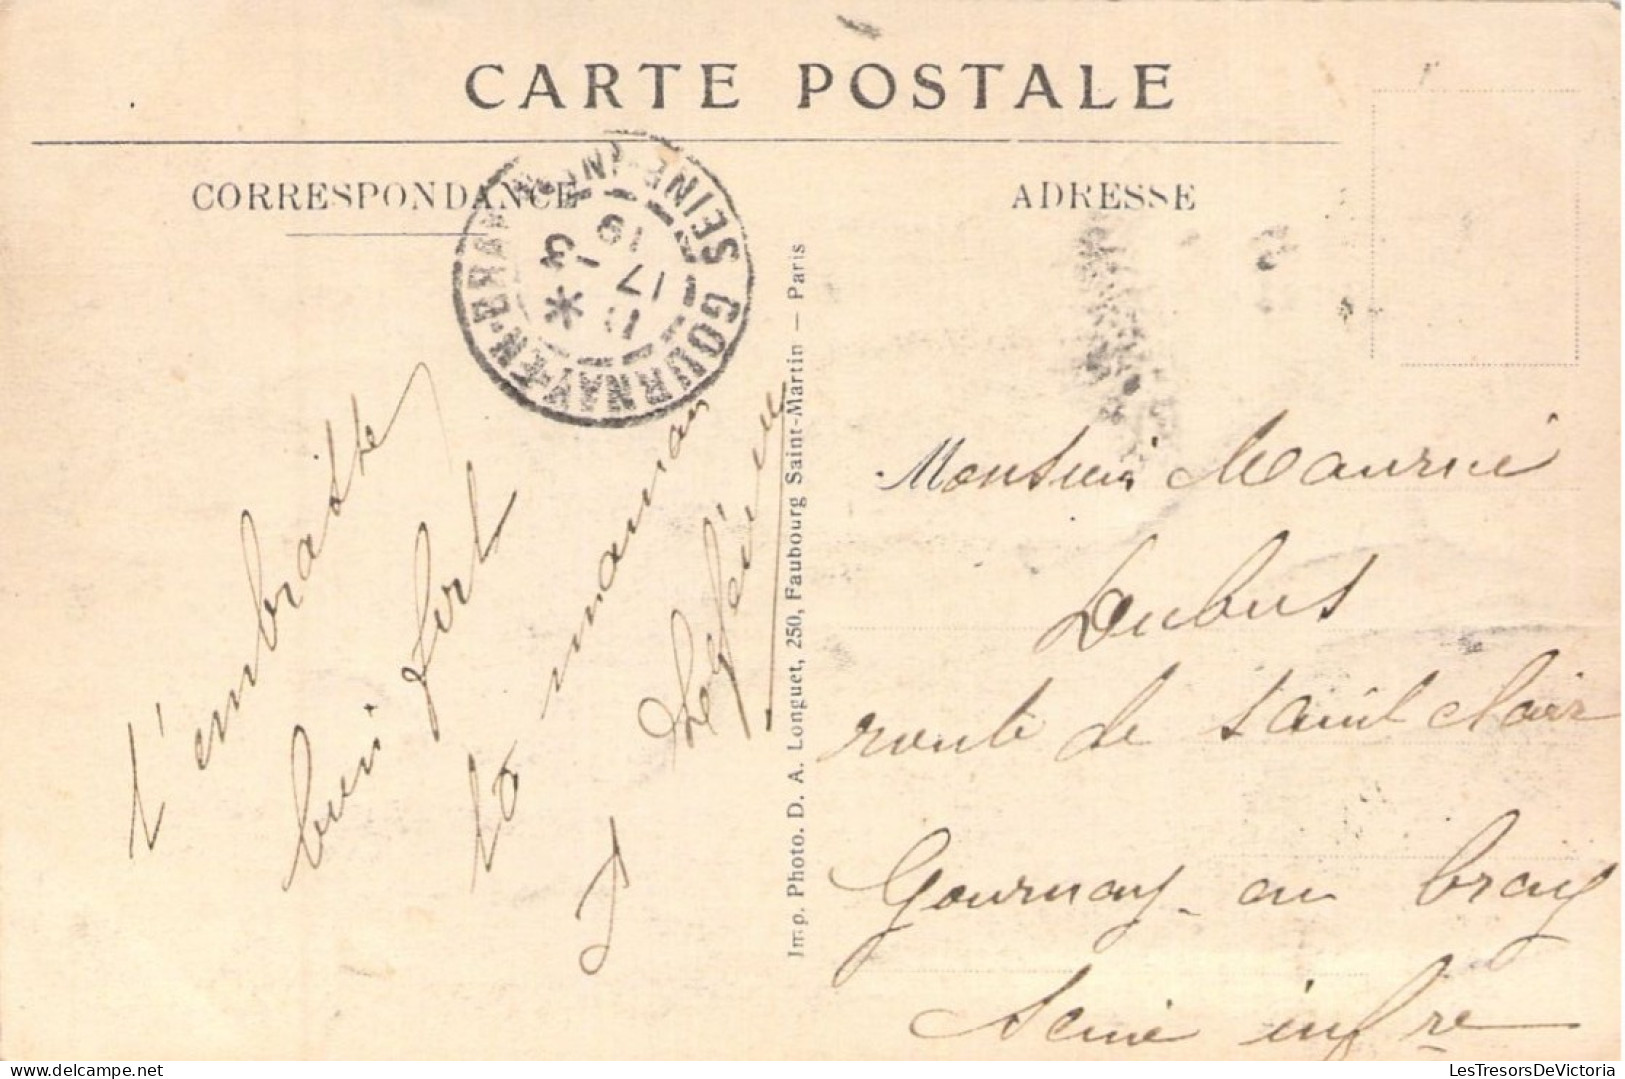 CARTE POSTALE
CORRESPONDANCE
ADRESSE
GOURNAY-EN-BRAY SEINE-INFRE
17 - 3
t'embrasse
bien fort
ta maman
Imp. Photo. D. A. Longuet, 250, Faubourg Saint-Martin — Paris
Monsieur Maurice
Dubus
route de Saint Clair
Gournay en bray
Seine infre
LesTresorsDeVictoria